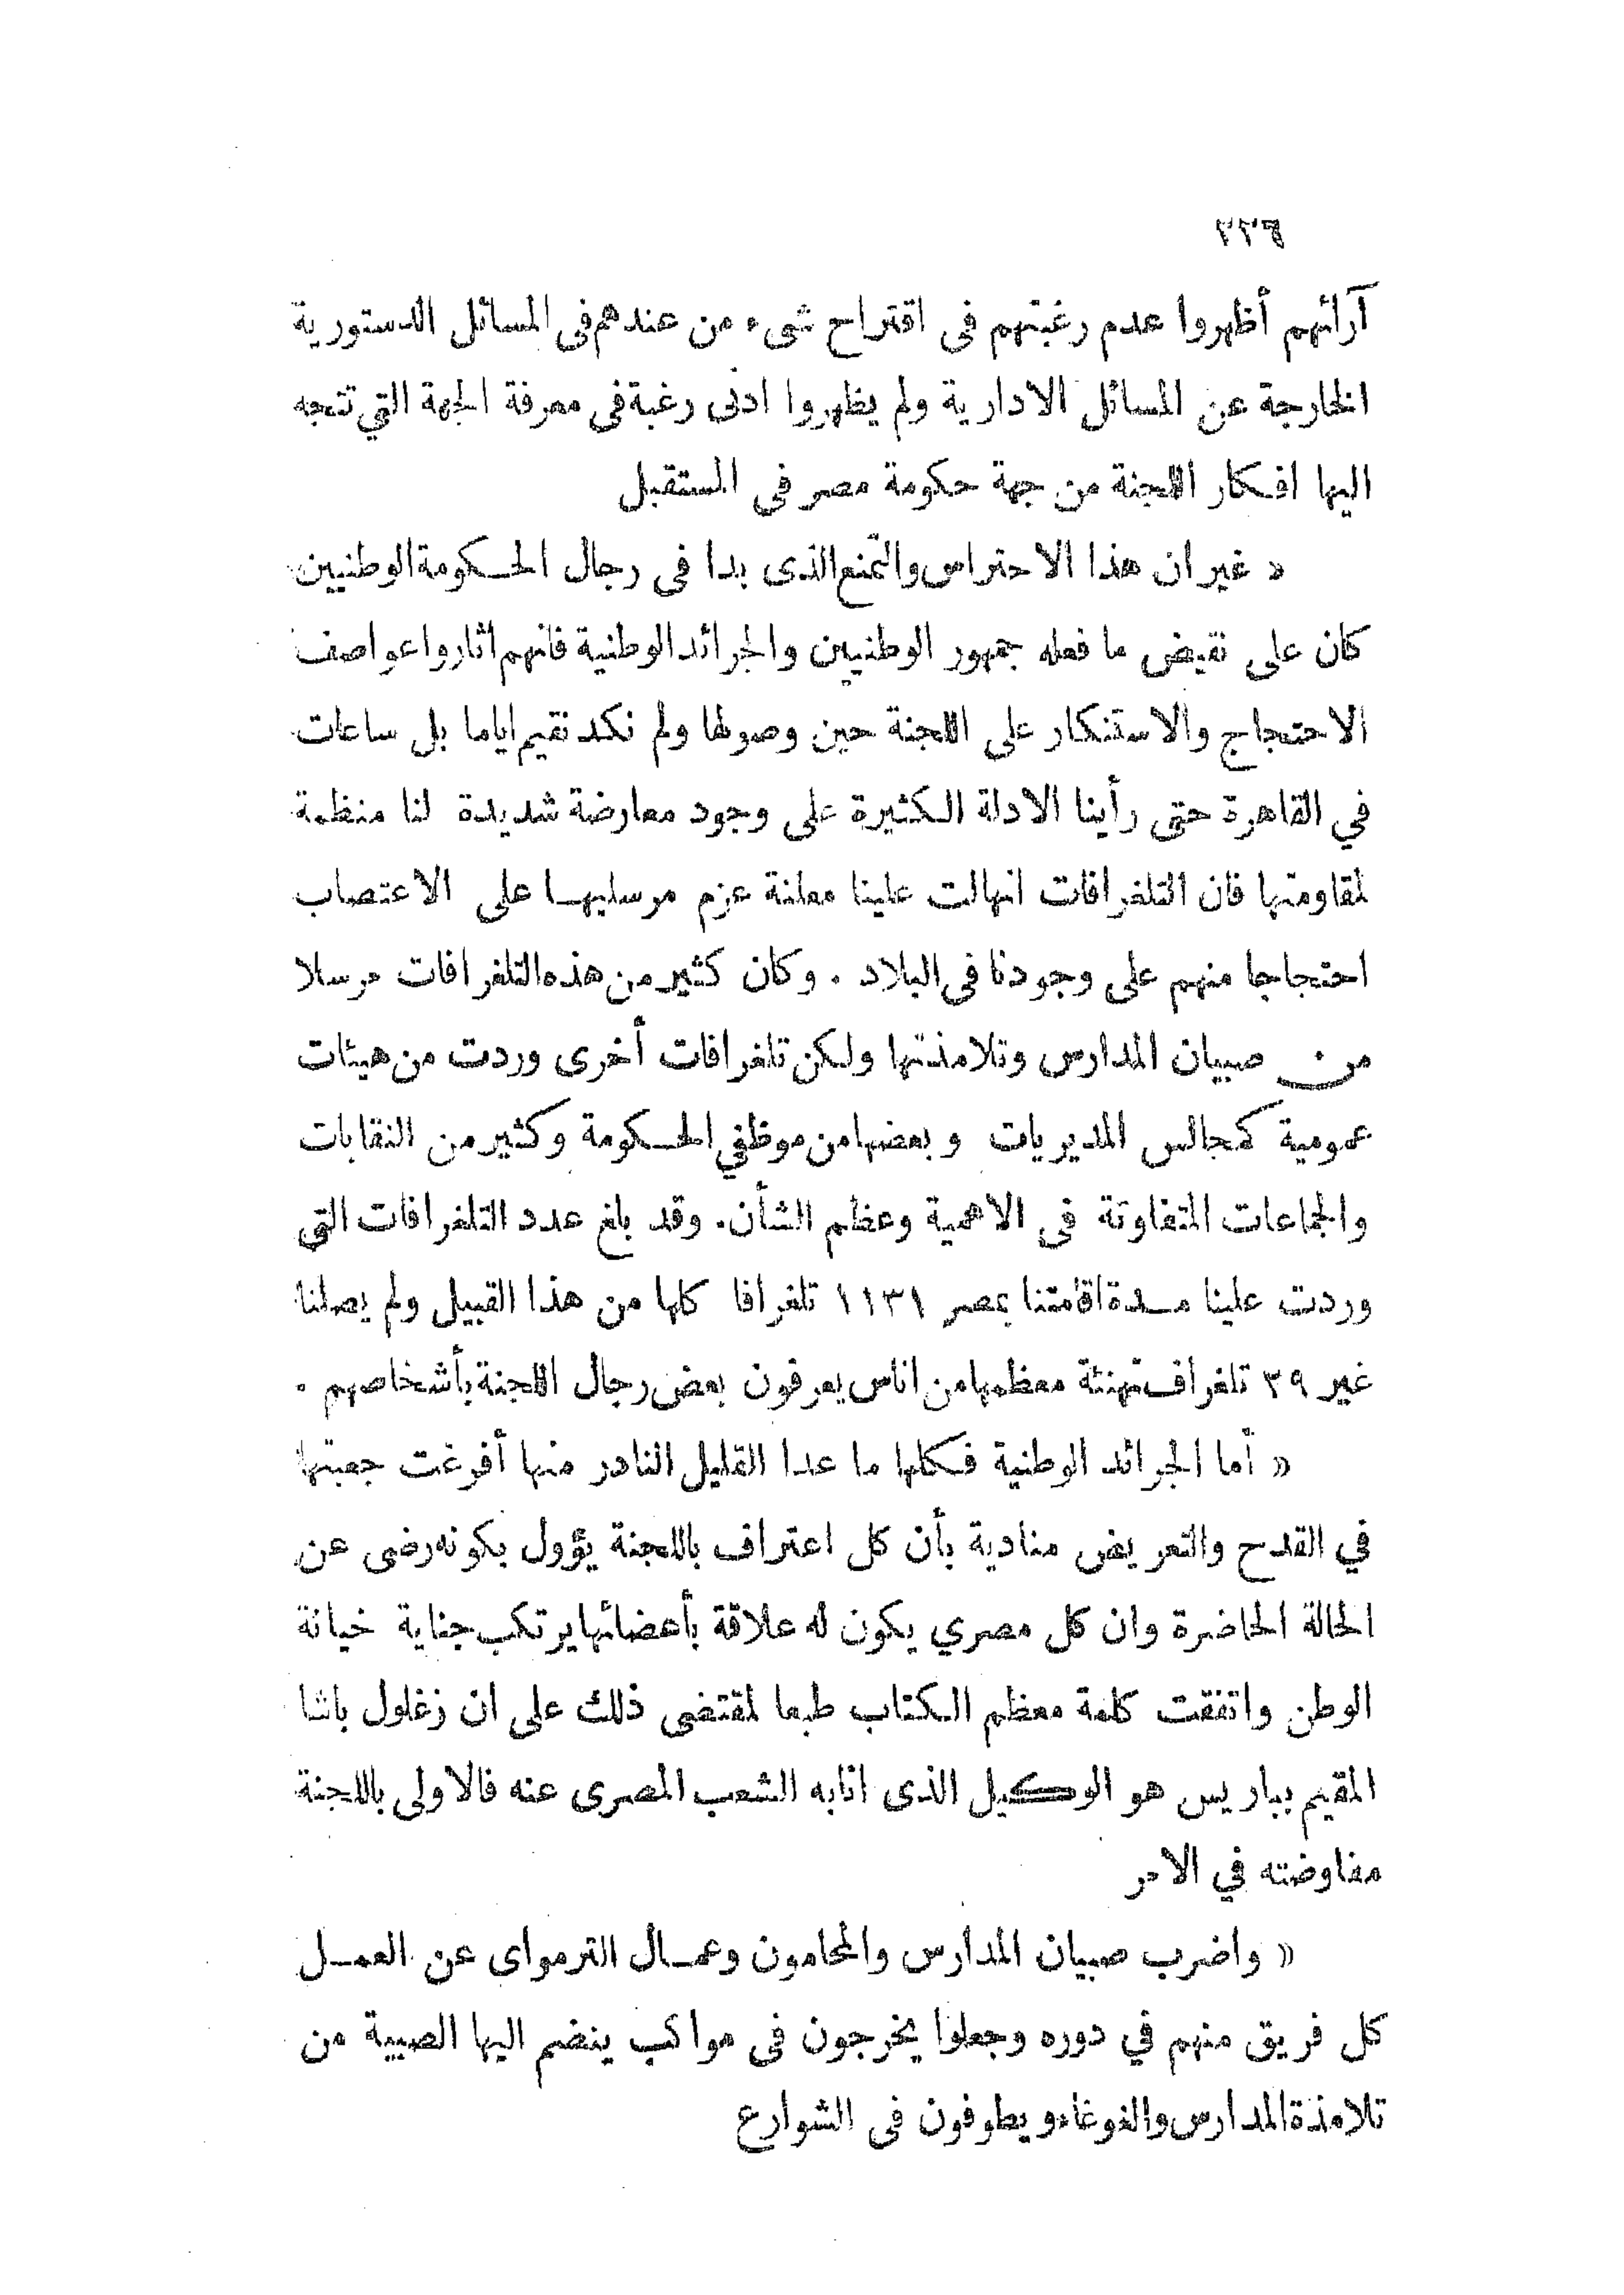 ٢٢٦
آرائهم أظهروا عدم رغبتهم فى اقتراح شىء من عندهم فى المسائل الدستورية
الخارجة عن المسائل الادارية ولم يظهروا ادنى رغبة فى معرفة الجهة التي تتجه
اليها افكار اللجنة من جهة حكومة مصر فى المستقبل
« غير ان هذا الاحتراس والتمنع الذى بدا فى رجال الحكومة الوطنيين
كان على نقيض ما فعله جمهور الوطنيين والجرائد الوطنية فانهم اثاروا عواصف
الاحتجاج والاستنكار على اللجنة حين وصولها ولم نكد نقيم اياما بل ساعات
في القاهرة حتى رأينا الادلة الكثيرة على وجود معارضة شديدة لنا منظمة
لمقاومتها فان التلغرافات انهالت علينا معلنة عزم مرسليها على الاعتصاب
احتجاجا منهم على وجودنا فى البلاد . وكان كثير من هذه التلغرافات مرسلا
من صبيان المدارس وتلامذتها ولكن تلغرافات أخرى وردت من هيئات
عمومية كمجالس المديريات وبعضها من موظفي الحكومة وكثير من النقابات
والجماعات المتفاوتة فى الاهمية وعظم الشأن. وقد بلغ عدد التلغرافات التى
وردت علينا مدة اقامتنا بمصر ١١٣١ تلغرافا كلها من هذا القبيل ولم يصلنا
غير ٣٩ تلغراف تهنئة معظمها من اناس يعرفون بعض رجال اللجنة بأشخاصهم .
« أما الجرائد الوطنية فكلها ما عدا القليل النادر منها أفرغت جعبتها
في القدح والتعريض منادية بأن كل اعتراف باللجنة يؤول بكونه رضى عن
الحالة الحاضرة وان كل مصري يكون له علاقة بأعضائها يرتكب جناية خيانة
الوطن واتفقت كلمة معظم الكتاب طبعا لمقتضى ذلك على ان زغلول باشا
المقيم بباريس هو الوكيل الذى انابه الشعب المصرى عنه فالاولى باللجنة
مفاوضته في الامر
« واضرب صبيان المدارس والمحامون وعمال الترمواى عن العمل
كل فريق منهم في دوره وجعلوا يخرجون فى مواكب ينضم اليها الصبية من
تلامذة المدارس والغوغاء ويطوفون فى الشوارع